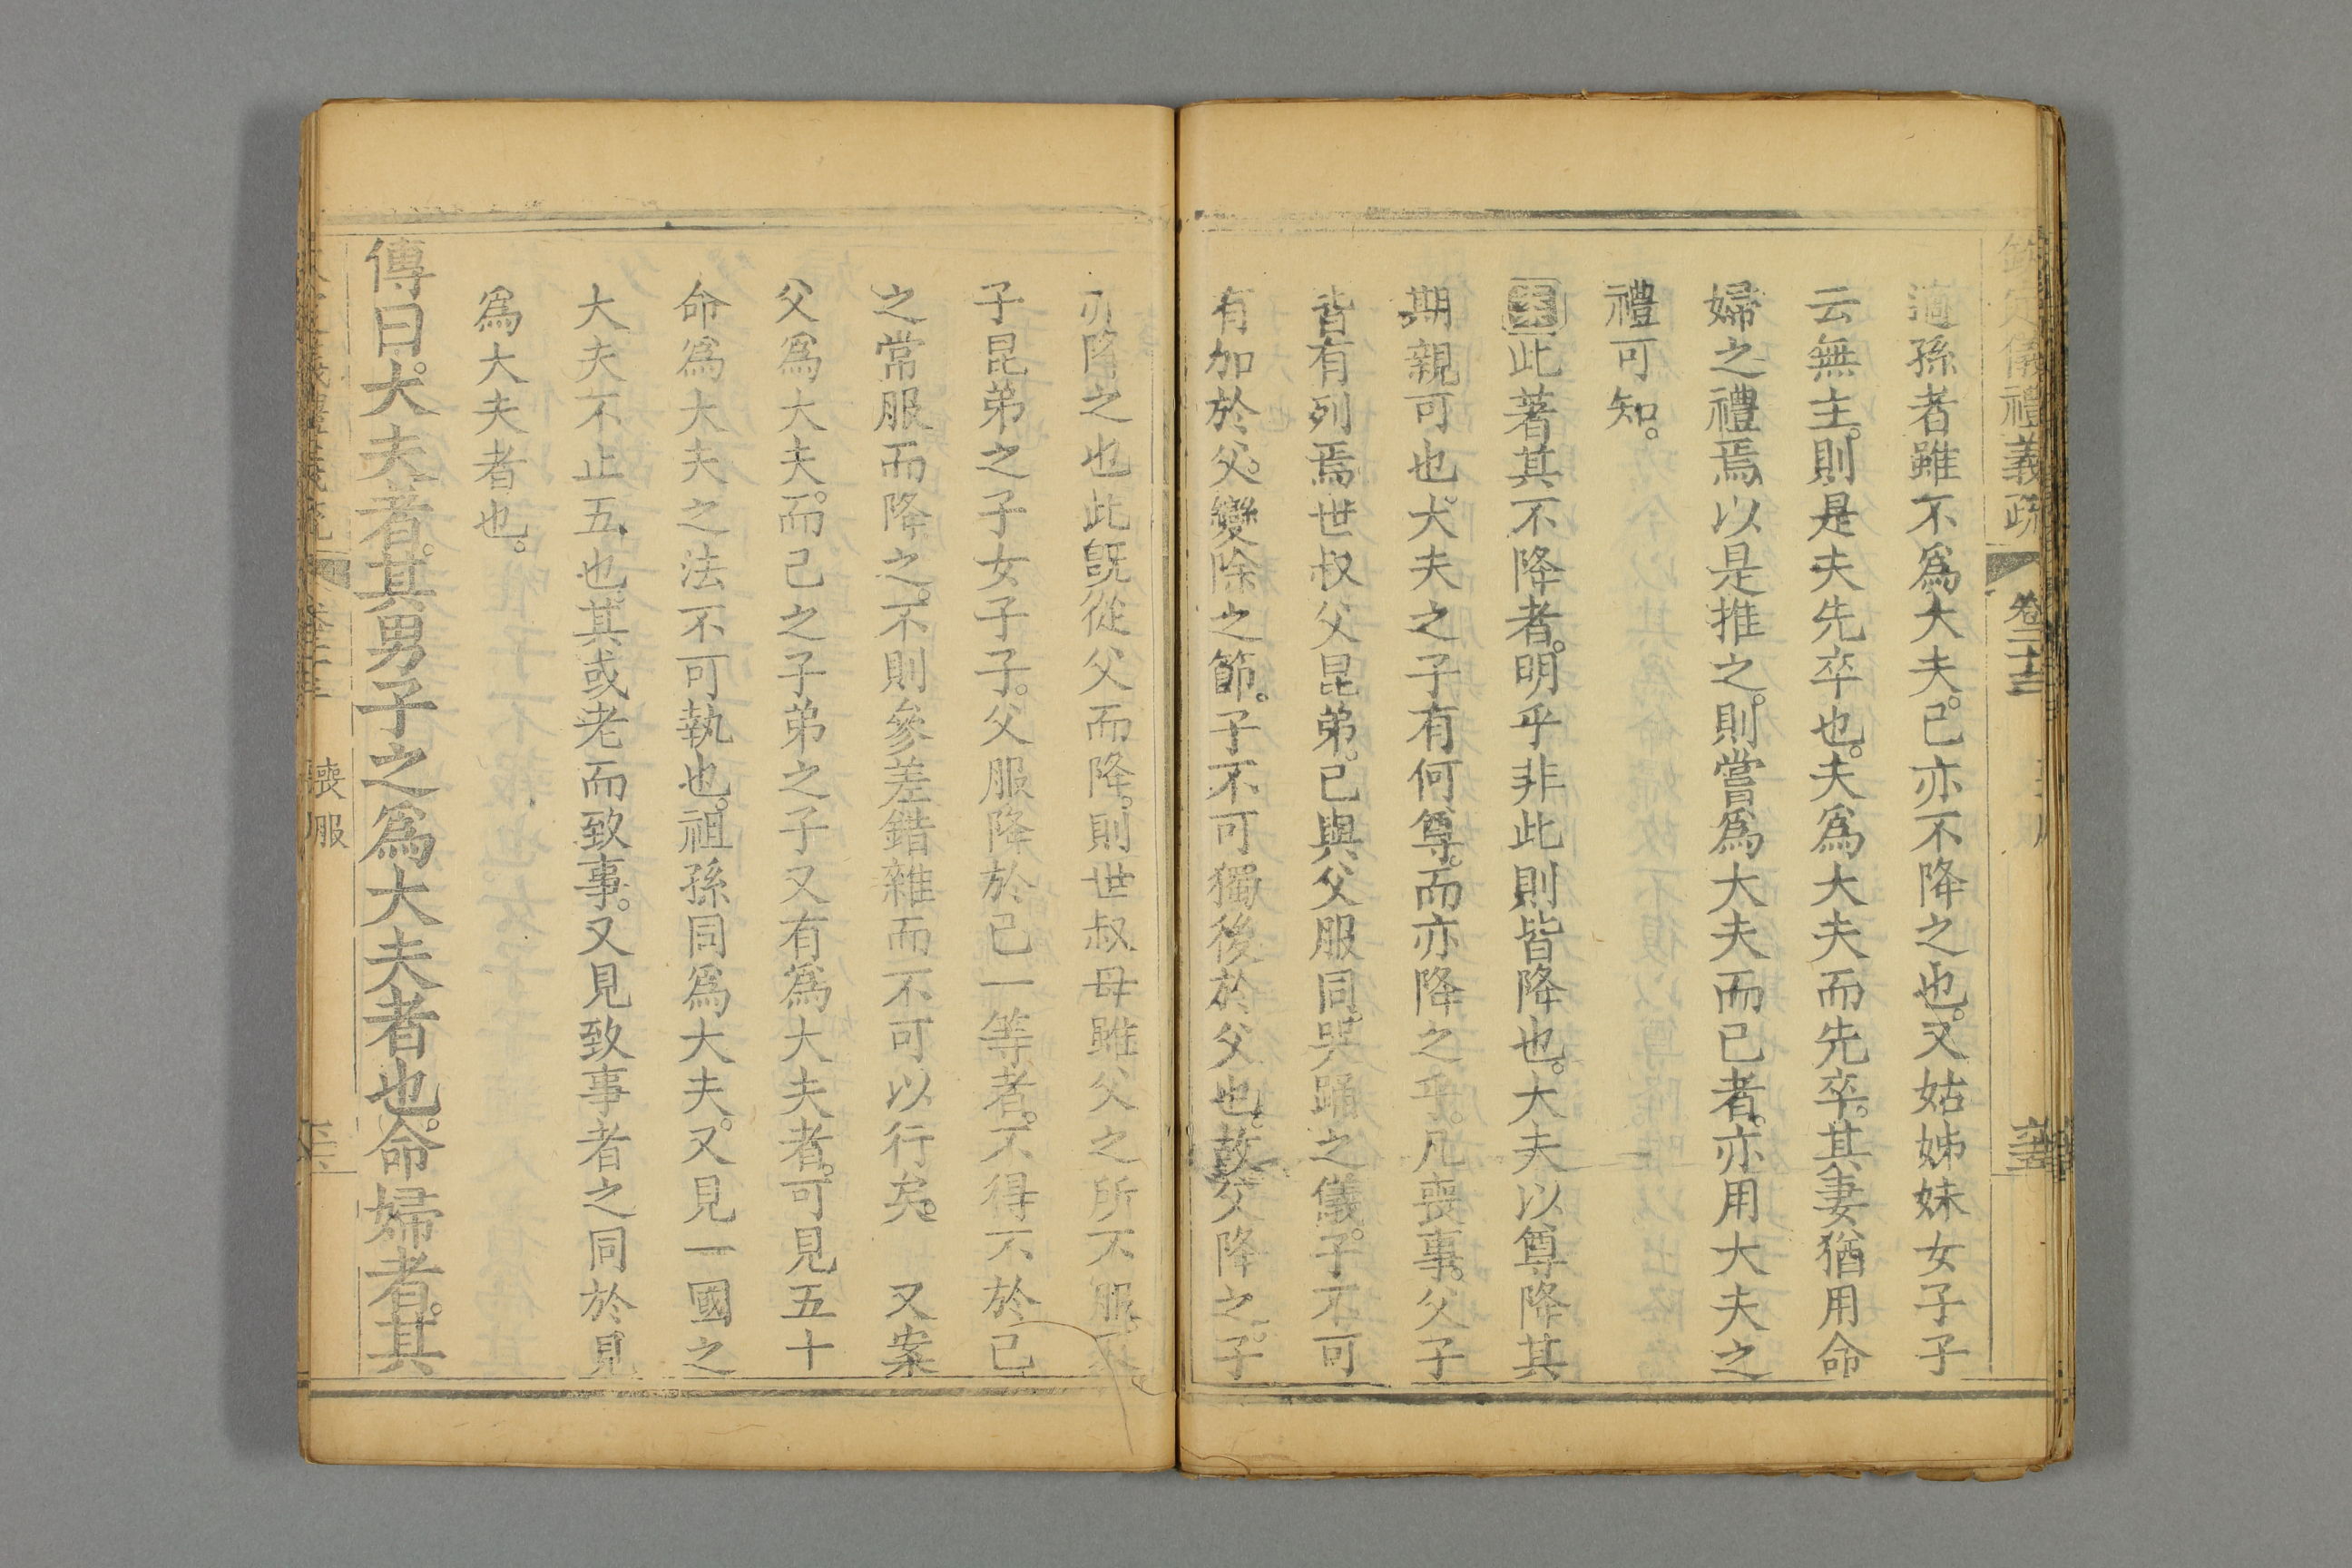 欽定儀禮義疏 卷二十三
適孫者雖不爲大夫。己亦不降之也。又姑姊妹女子子
云無主。則是夫先卒也。夫爲大夫而先卒。其妻猶用命
婦之禮焉。以是推之。則嘗爲大夫而已者。亦用大夫之
禮可知。
此著其不降者。明乎非此則皆降也。大夫以尊降其
期親可也。大夫之子有何尊。而亦降之乎。凡喪事。父子
皆有列焉。世叔父昆弟。己與父服同。哭踊之儀。子不可
有加於父。變除之節。子不可獨後於父也。故父降之。子
亦降之也。此旣從父而降。則世叔母雖父之所不服。
子昆弟之子女子子。父服降於己一等者。不得不於己
之常服而降之。不則參差錯雜而不可以行矣。 又案
父爲大夫。而己之子弟之子又有爲大夫者。可見五十
命爲大夫之法不可執也。祖孫同爲大夫。又見一國之
大夫不止五也。其或老而致事。又見致事者之同於見
爲大夫者也。
傳曰。大夫者。其男子之爲大夫者也。命婦者。其
喪服